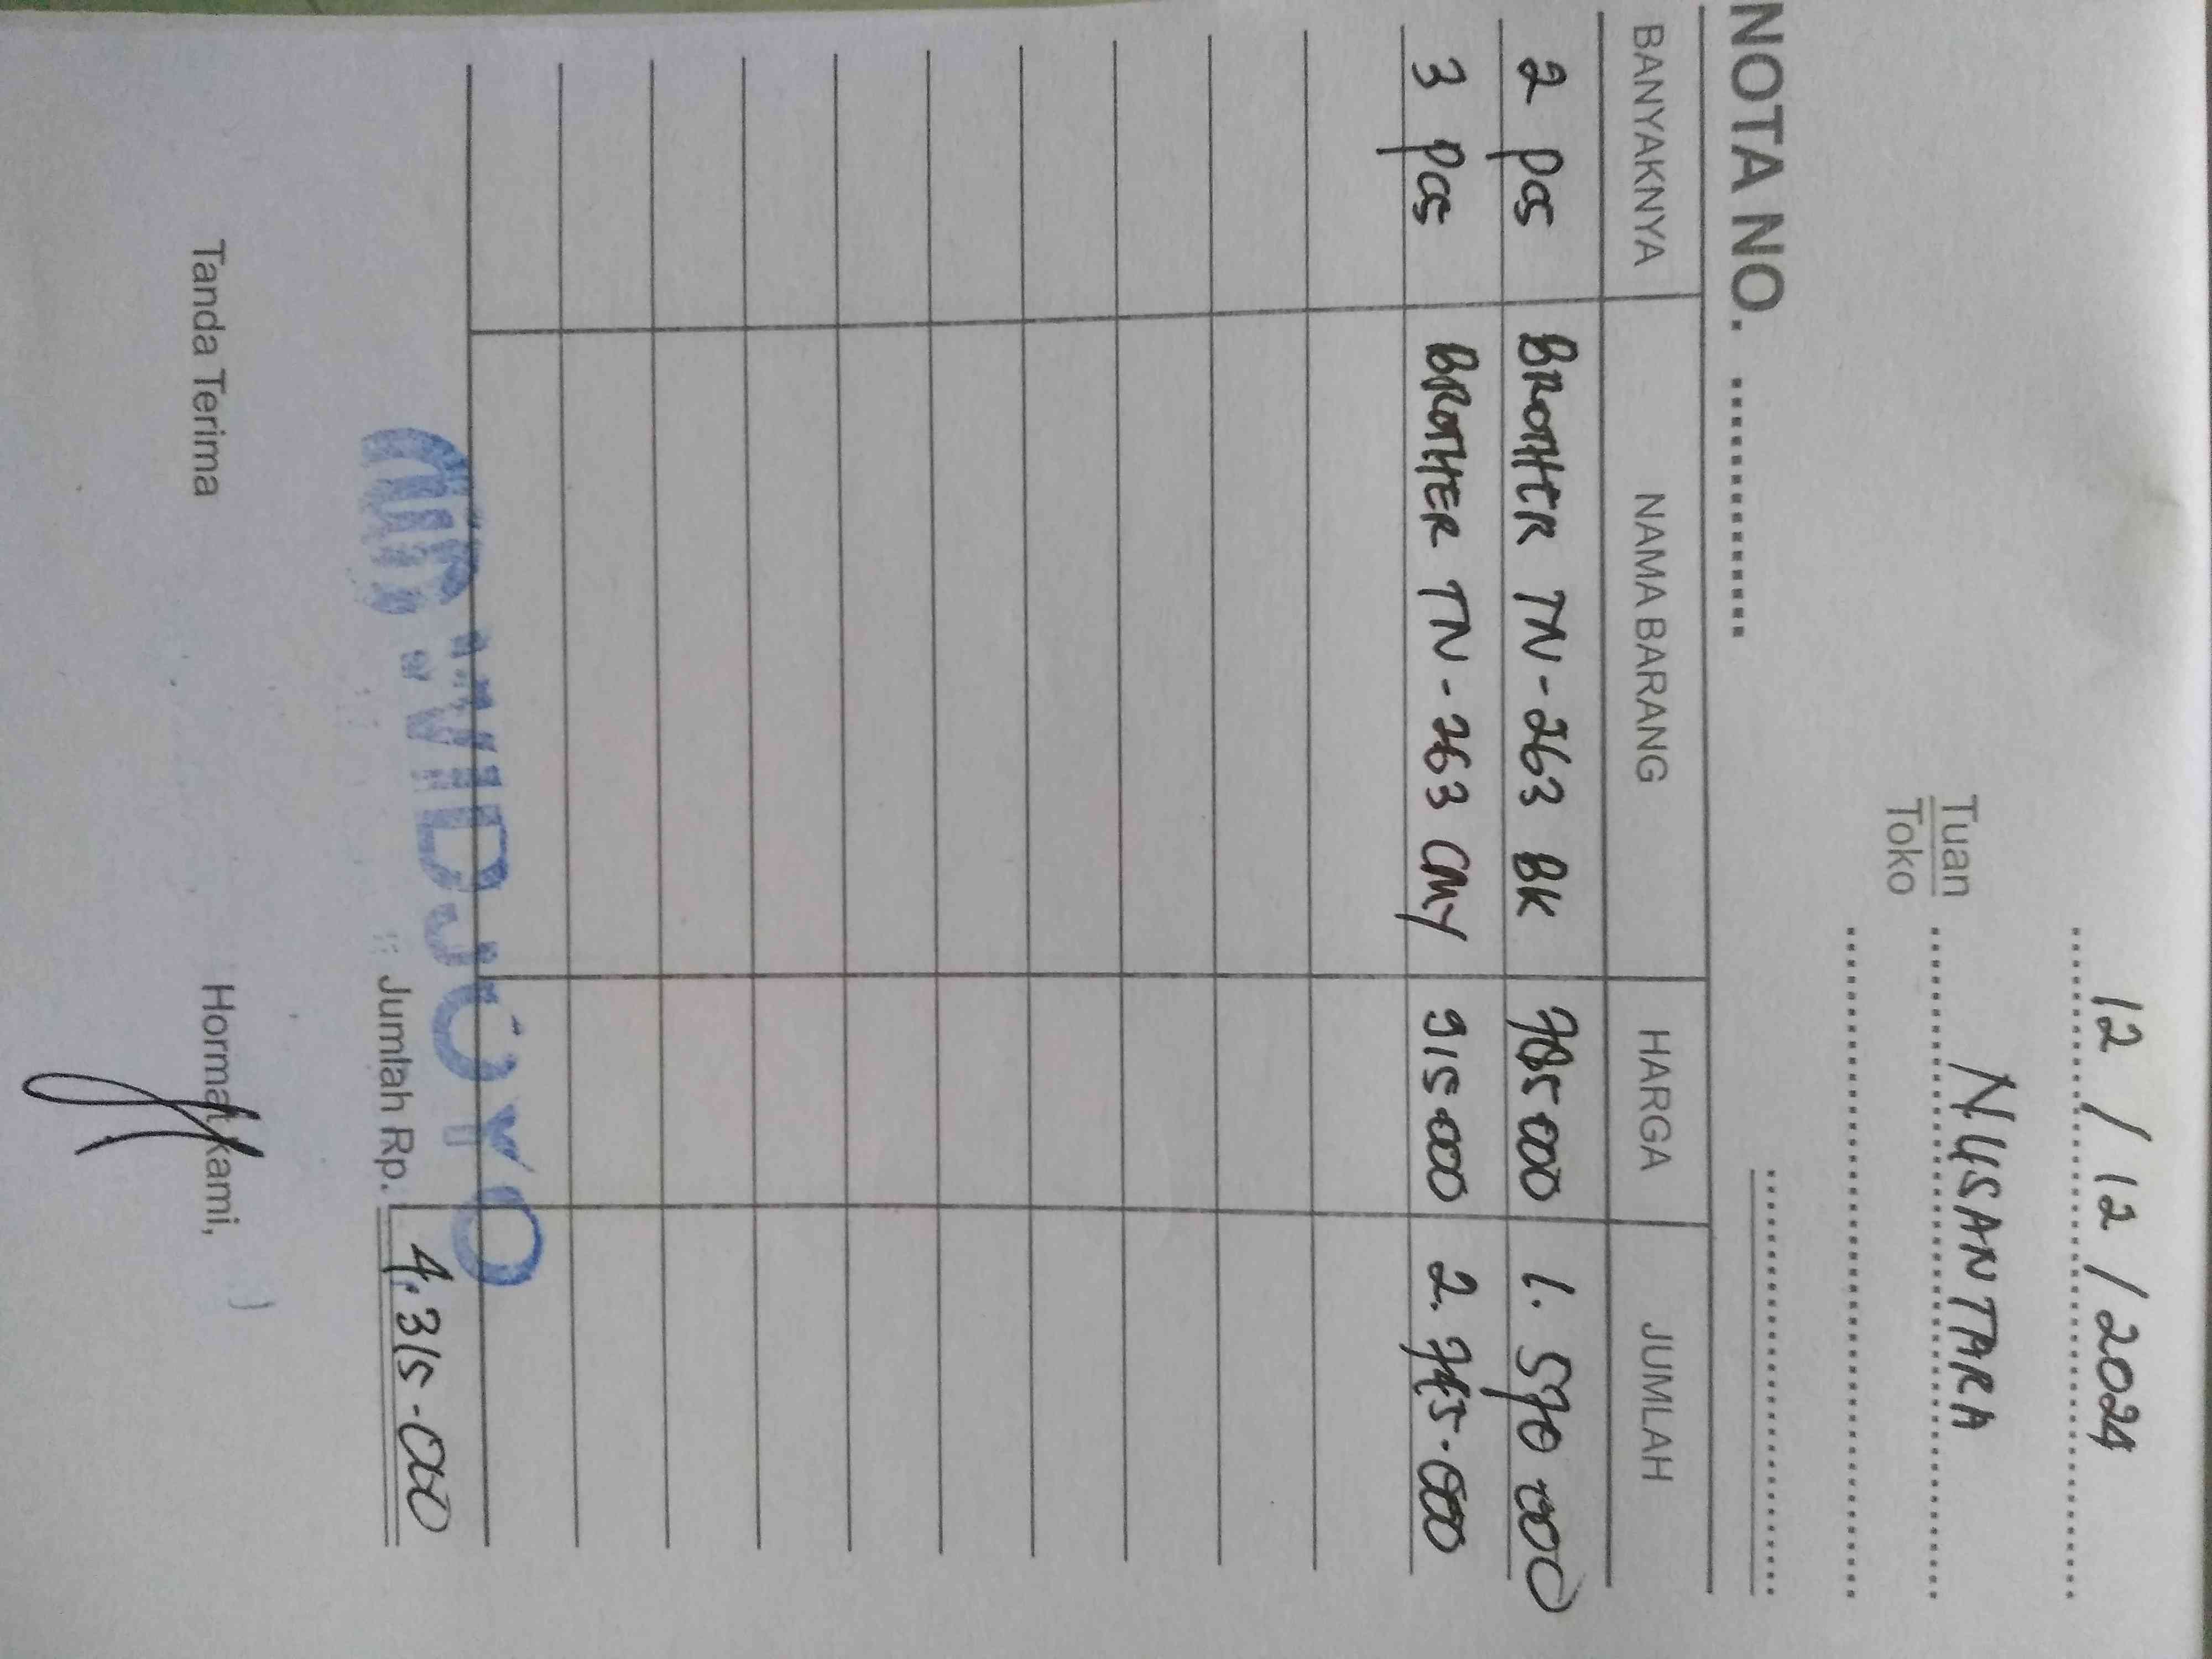 12 / 12 / 2024
Tuan NUSANTARA
Toko
NOTA NO. ...............
BANYAKNYA NAMA BARANG HARGA JUMLAH
2 pcs BROTHER TN-263 BK 785000 1.570 000
3 pcs BROTHER TN-263 CMY 915.000 2.745.000
WIDJOYO
Jumlah Rp. 4.315.000
Tanda Terima Hormat kami,